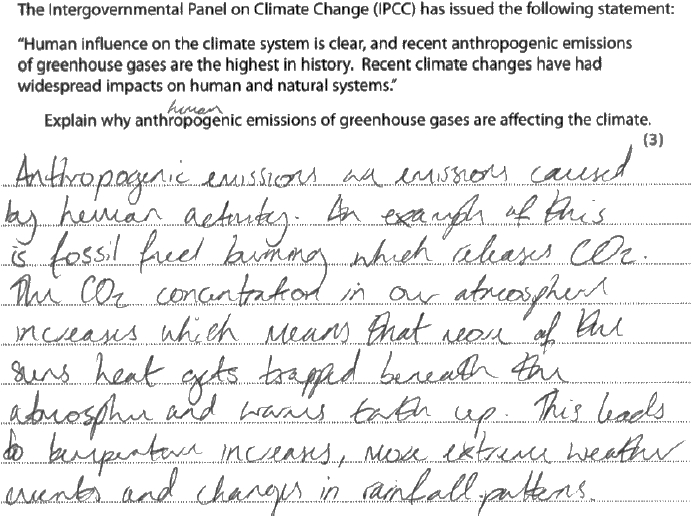 The Intergovernmental Panel on Climate Change (IPCC) has issued the following statement:
"Human influence on the climate system is clear, and recent anthropogenic emissions
of greenhouse gases are the highest in history. Recent climate changes have had
widespread impacts on human and natural systems."
human
Explain why anthropogenic emissions of greenhouse gases are affecting the climate.
(3)
Anthropogenic emissions are emissions caused
by human activity. An example of this
is fossil fuel burning which releases CO2.
The CO2 concentration in our atmosphere
increases which means that more of the
suns heat gets trapped beneath the
atmosphere and warms Earth up. This leads
to temperature increases, more extreme weather
events and changes in rainfall patterns.